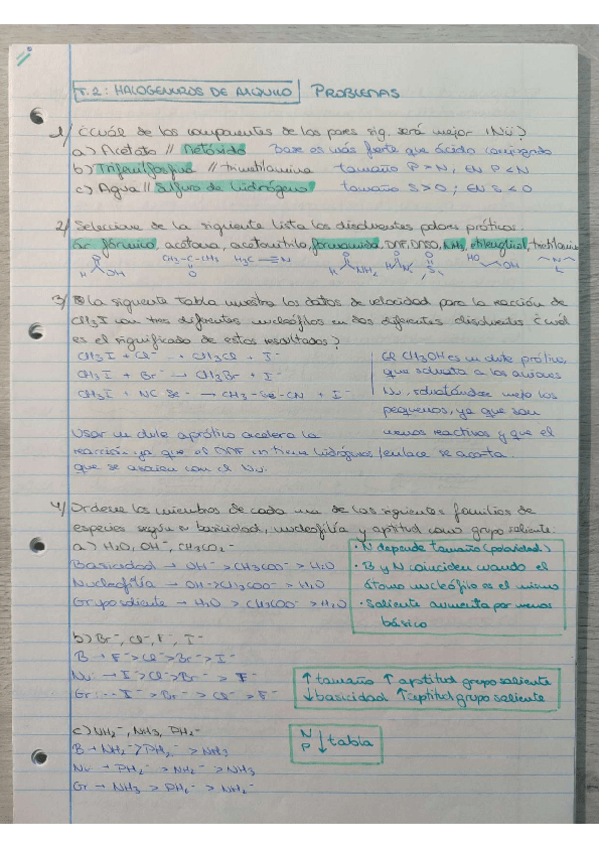 T.2: HALOGENUROS DE ALQUILO | PROBLEMAS
1/ ¿Cuál de los componentes de los pares sig. será mejor (Nu)?
a) Acetato // Metóxido Base es más fuerte que ácido conjugado
b) Trifenilfosfina // trimetilamina tamaño P > N, EN P < N
c) Agua // Sulfuro de hidrógeno tamaño S > O ; EN S < O
2/ Seleccione de la siguiente lista los disolventes polares próticos:
ác fórmico, acetona, acetonitrilo, formamida, DMF, DMSO, NH3, etilenglicol, trietilamina
OH CH3-C-CH3 H3C-C≡N NH2 HO OH
O
3/ La siguiente tabla muestra los datos de velocidad para la reacción de
CH3I con tres diferentes nucleófilos en dos diferentes disolventes ¿cuál
es el significado de estos resultados?
CH3I + Cl⁻ → CH3Cl + I⁻
CH3I + Br⁻ → CH3Br + I⁻
CH3I + NC Se⁻ → CH3-Se-CN + I⁻
El CH3OH es un dvlte prótico,
que solvata a los aniones
Nu, solvatándose mejo los
pequeños, ya que son
menos reactivos y que el
enlace se acorta
Usar un dvlte aprótico acelera la
reacción ya que el DMF no tiene hidrógenos
que se asocien con el Nu.
4/ Ordene los miembros de cada una de las siguientes familias de
especies según su basicidad, nucleofilia y aptitud como grupo saliente:
a) H2O, OH⁻, CH3CO2⁻
Basicidad → OH⁻ > CH3COO⁻ > H2O
Nucleofilia → OH⁻ > CH3COO⁻ > H2O
Grupo saliente → H2O > CH3COO⁻ > H2O
• N depende tamaño (polaridad)
• B y N coinciden cuando el
átomo nucleófilo es el mismo
• Saliente aumenta por menos
básico
b) Br⁻, Cl⁻, F⁻, I⁻
B → F⁻ > Cl⁻ > Br⁻ > I⁻
Nu: → I⁻ > Cl⁻ > Br⁻ > F⁻
Gr: → I⁻ > Br⁻ > Cl⁻ > F⁻
↑ tamaño ↑ aptitud grupo saliente
↓ basicidad ↑ aptitud grupo saliente
c) NH2⁻, NH3, PH2⁻
B → NH2⁻ > PH2⁻ > NH3
Nu → PH2⁻ > NH2⁻ > NH3
Gr → NH3 > PH2⁻ > NH2⁻
N
P ↓ tabla